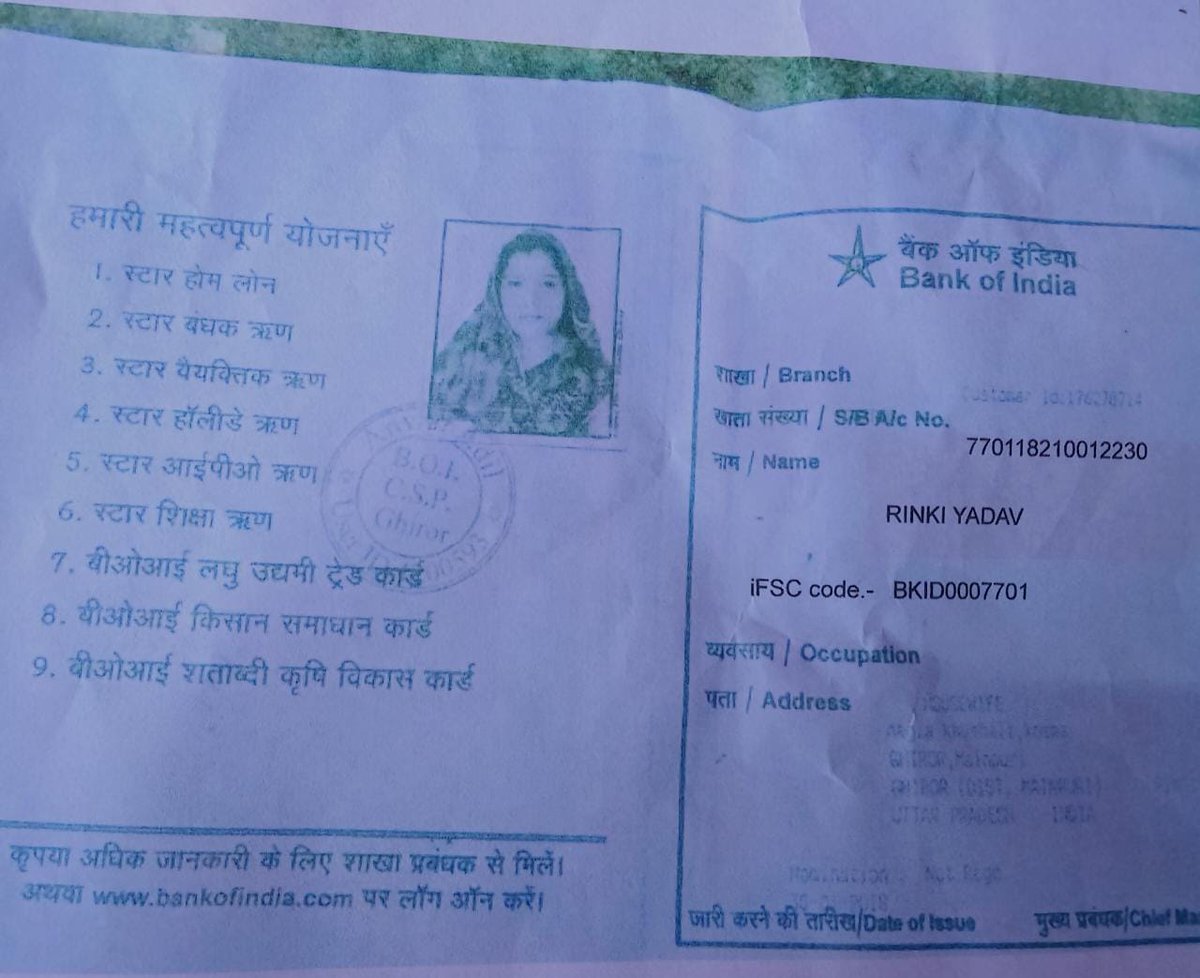 हमारी महत्वपूर्ण योजनाएँ
1. स्टार होम लोन
2. स्टार बंधक ऋण
3. स्टार वैयक्तिक ऋण
4. स्टार हॉलीडे ऋण
5. स्टार आईपीओ ऋण
6. स्टार शिक्षा ऋण
7. बीओआई लघु उद्यमी ट्रेड कार्ड
8. बीओआई किसान समाधान कार्ड
9. बीओआई शताब्दी कृषि विकास कार्ड
B.O.I.
C.S.P.
Ghiror
कृपया अधिक जानकारी के लिए शाखा प्रबंधक से मिलें।
अथवा www.bankofindia.com पर लॉग ऑन करें।
बैंक ऑफ इंडिया
Bank of India
शाखा / Branch
Customer Id:
खाता संख्या / S/B A/c No.
770118210012230
नाम / Name
RINKI YADAV
iFSC code.- BKID0007701
व्यवसाय / Occupation
HOUSEWIFE
पता / Address
GHIROR,Mainpuri
GHIROR (DIST. MAINPURI)
UTTAR PRADESH INDIA
जारी करने की तारीख/Date of Issue
मुख्य प्रबंधक/Chief Ma